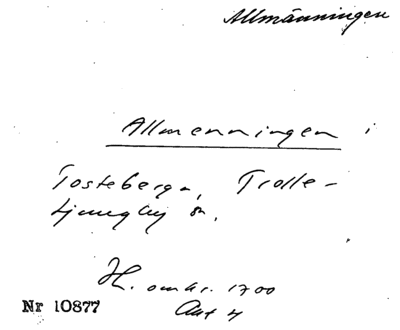 Allmänningen
Allmenningen i
Tosteberga, Trolle-
Ljungby sn.
H. omkr. 1700
Akt 4
Nr 10877